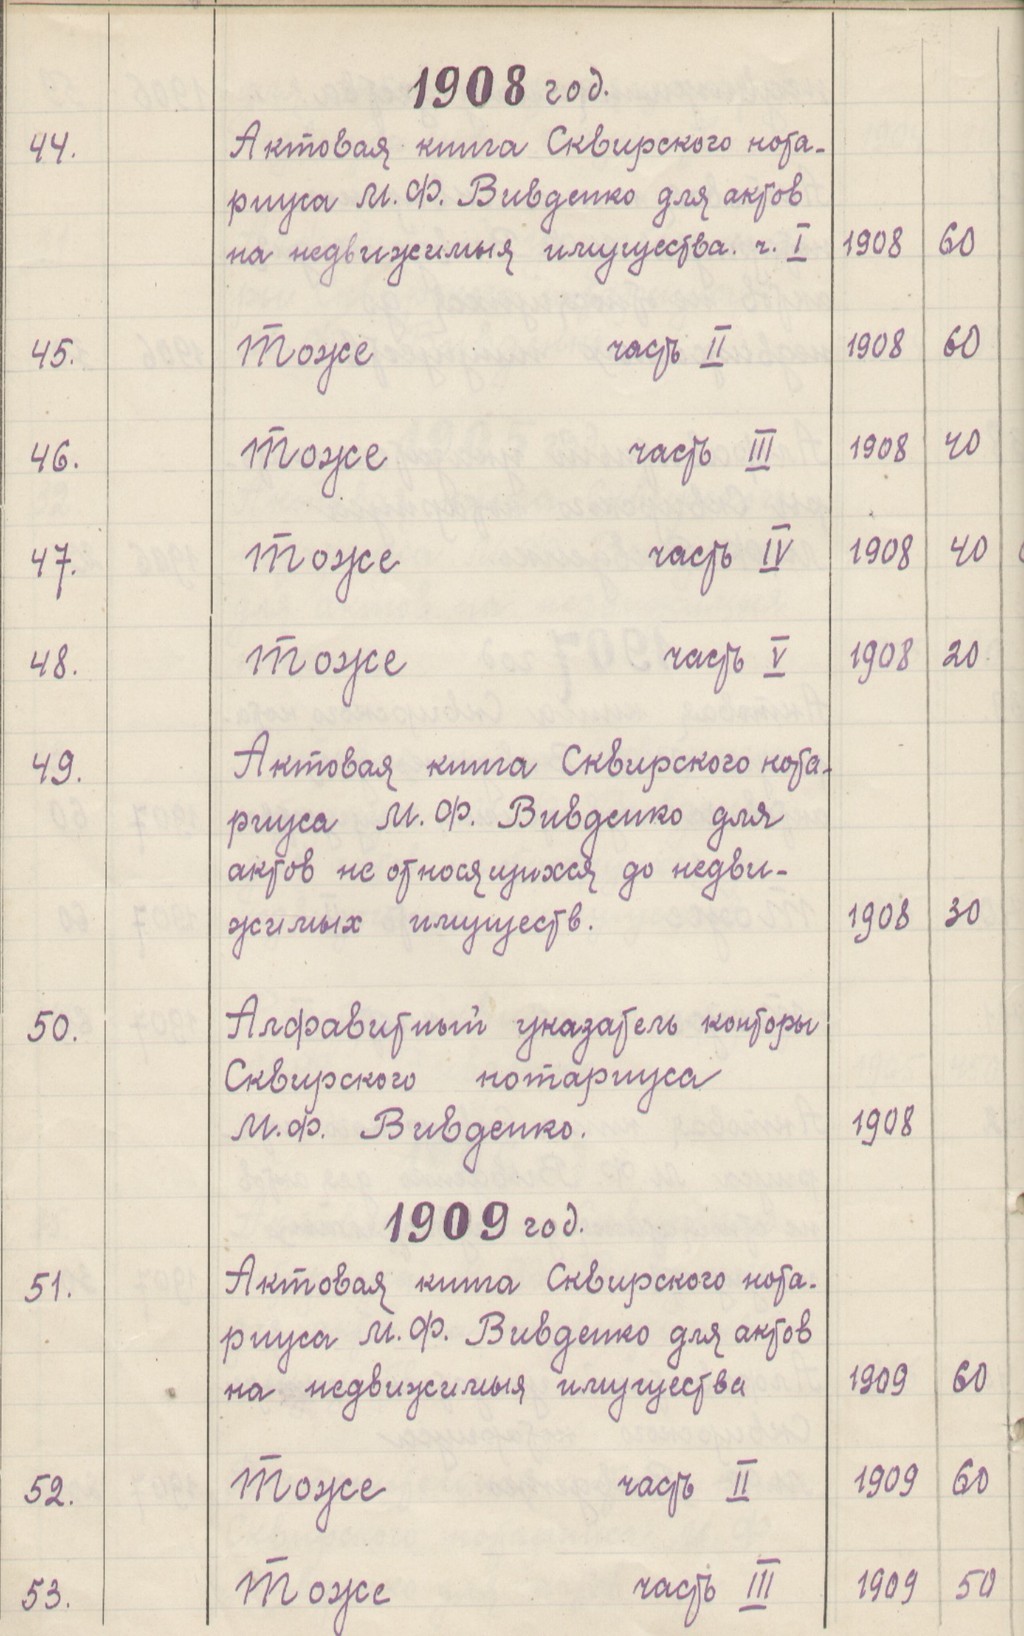 1908 год.
44. Актовая книга Сквирского нота-
риуса М. Ф. Вивденко для актов
на недвижимыя имущества. ч. I 1908 60
45. Тоже часть II 1908 60
46. Тоже часть III 1908 40
47. Тоже часть IV 1908 40
48. Тоже часть V 1908 20
49. Актовая книга Сквирского нота-
риуса М. Ф. Вивденко для
актов не относящихся до недви-
жимых имуществ. 1908 30
50. Алфавитный указатель конторы
Сквирского нотариуса
М. Ф. Вивденко. 1908
1909 год.
51. Актовая книга Сквирского нота-
риуса М. Ф. Вивденко для актов
на недвижимыя имущества 1909 60
52. Тоже часть II 1909 60
53. Тоже часть III 1909 50